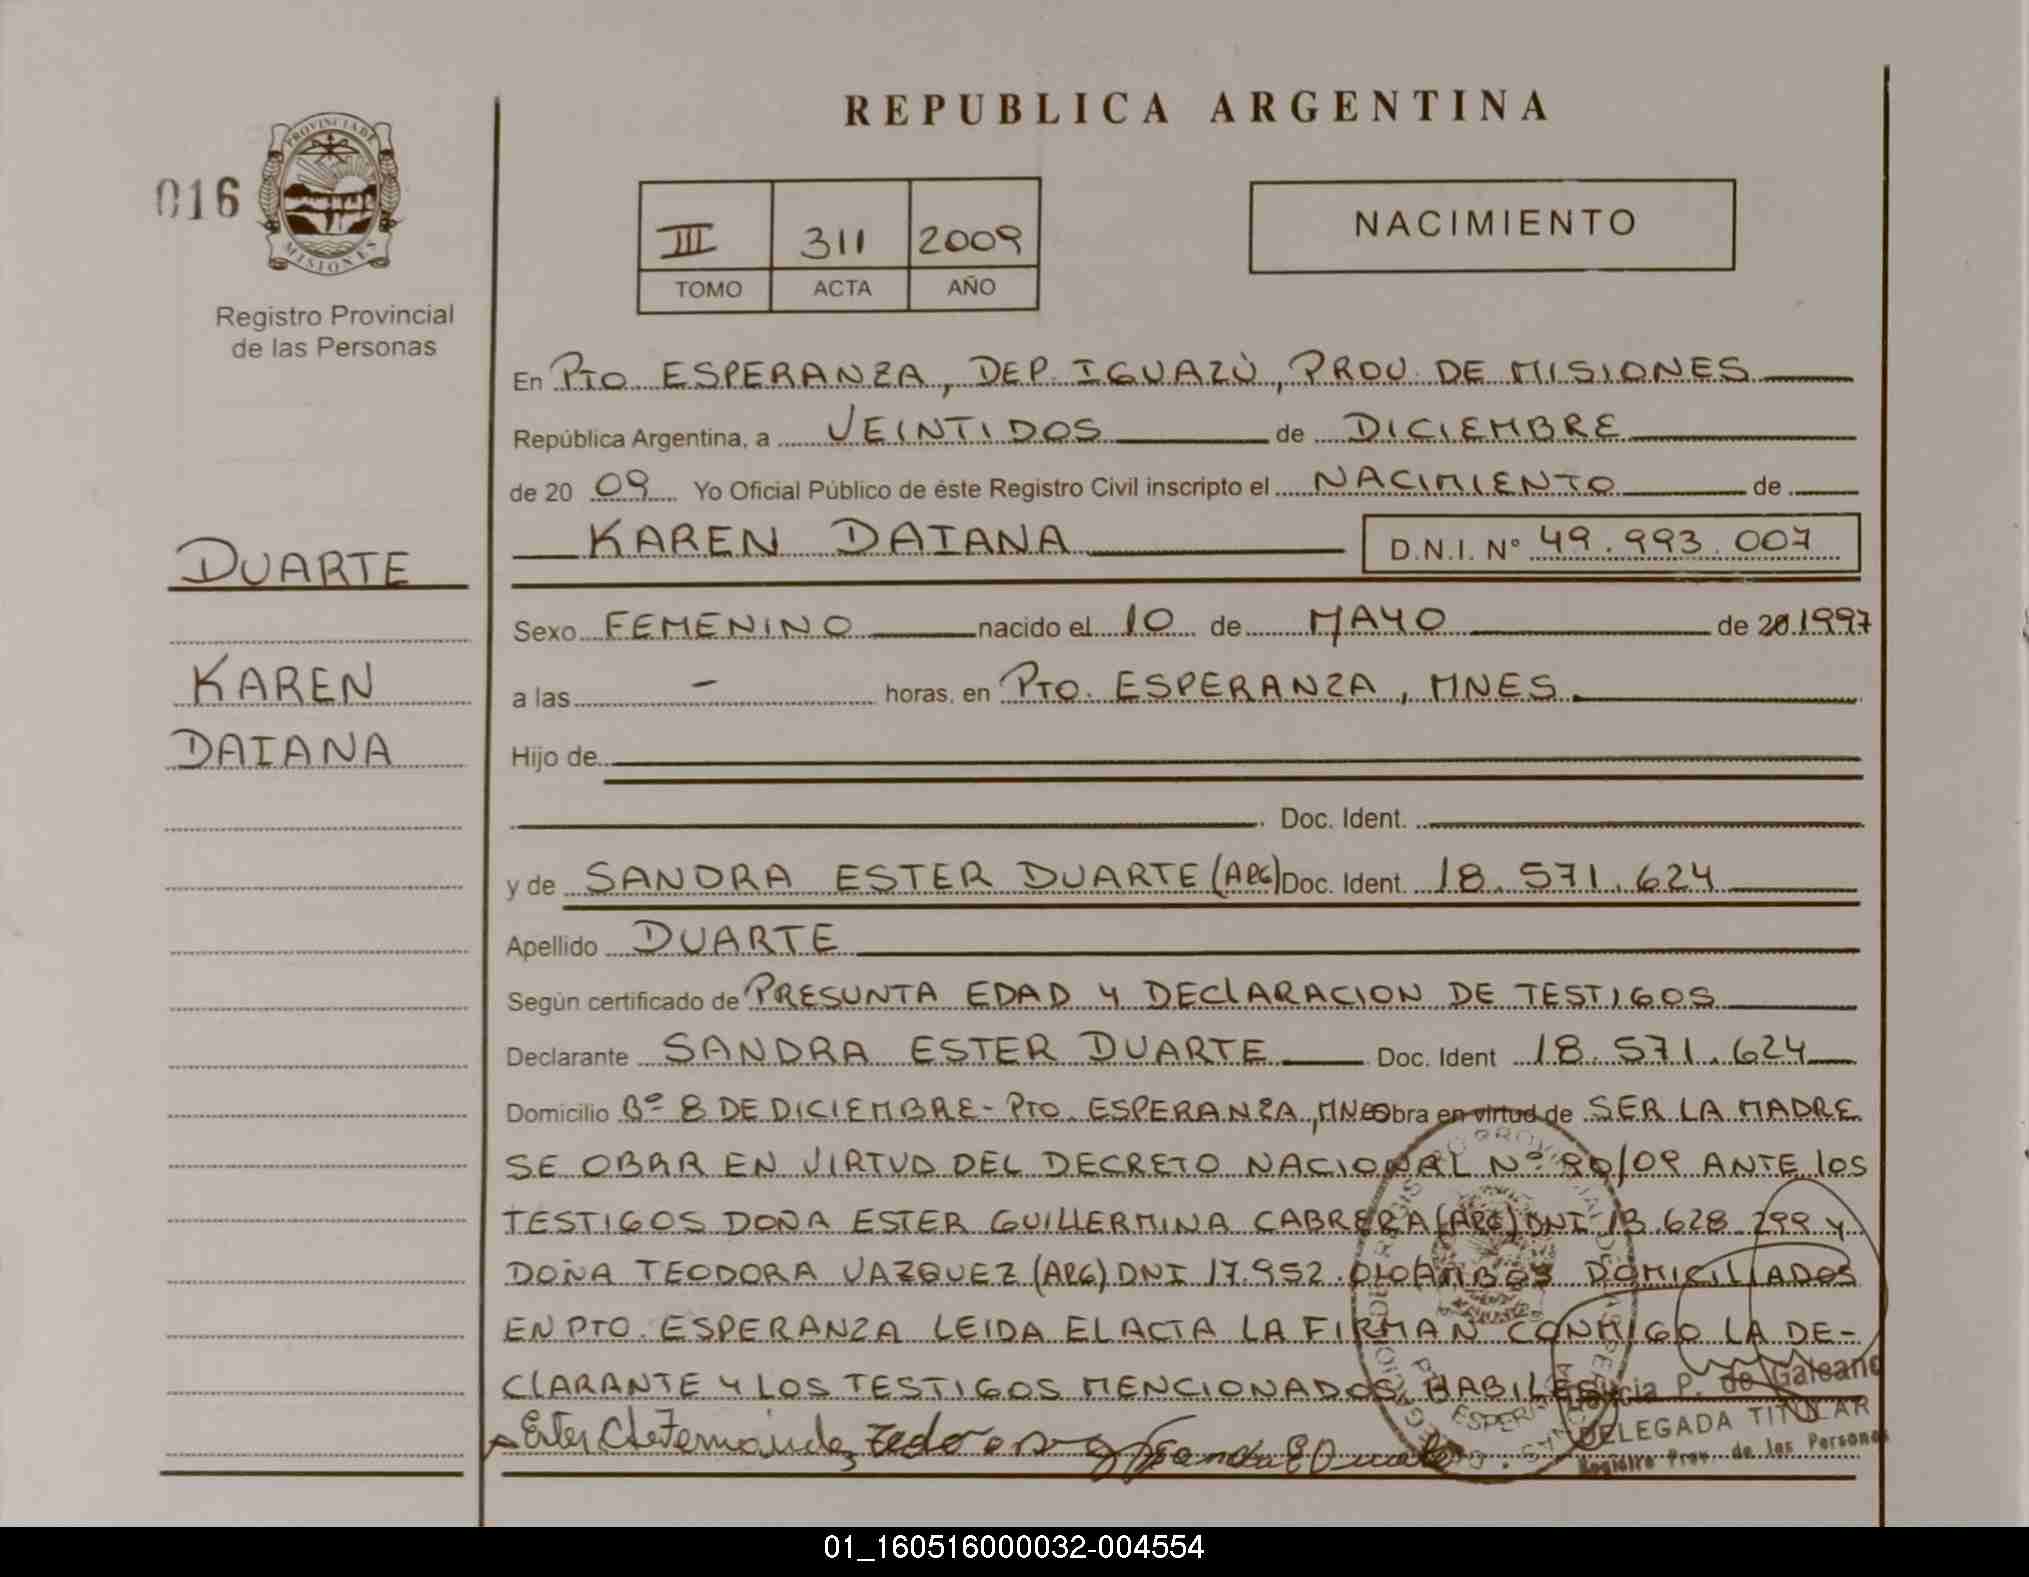 REPUBLICA ARGENTINA
016
PROVINCIA DE
MISIONES
Registro Provincial
de las Personas
III 311 2009
TOMO ACTA AÑO
NACIMIENTO
En PTO. ESPERANZA, DEP. IGUAZÙ, PROV. DE MISIONES
República Argentina, a VEINTIDOS de DICIEMBRE
de 20 09 Yo Oficial Público de éste Registro Civil inscripto el NACIMIENTO de
KAREN DAIANA D.N.I. N° 49.993.007
DUARTE
KAREN
DAIANA
Sexo FEMENINO nacido el 10 de MAYO de 20 1997
a las - horas, en PTO. ESPERANZA, MNES.
Hijo de
Doc. Ident.
y de SANDRA ESTER DUARTE (ARG) Doc. Ident. 18.571.624
Apellido DUARTE
Según certificado de PRESUNTA EDAD Y DECLARACION DE TESTIGOS
Declarante SANDRA ESTER DUARTE Doc. Ident 18.571.624
Domicilio Bº 8 DE DICIEMBRE - PTO. ESPERANZA, MNES obra en virtud de SER LA MADRE
SE OBRA EN VIRTUD DEL DECRETO NACIONAL Nº 90/09 ANTE LOS
TESTIGOS DOÑA ESTER GUILLERMINA CABRERA (ARG) DNI 13.628.299 Y
DOÑA TEODORA VAZQUEZ (ARG) DNI 17.952.010 AMBOS DOMICILIADOS
EN PTO. ESPERANZA LEIDA EL ACTA LA FIRMAN CONMIGO LA DE-
CLARANTE Y LOS TESTIGOS MENCIONADOS HABILES
Ester C de Fernández
P. de Galeano
DELEGADA TITULAR
Registro Prov. de las Personas
01_160516000032-004554